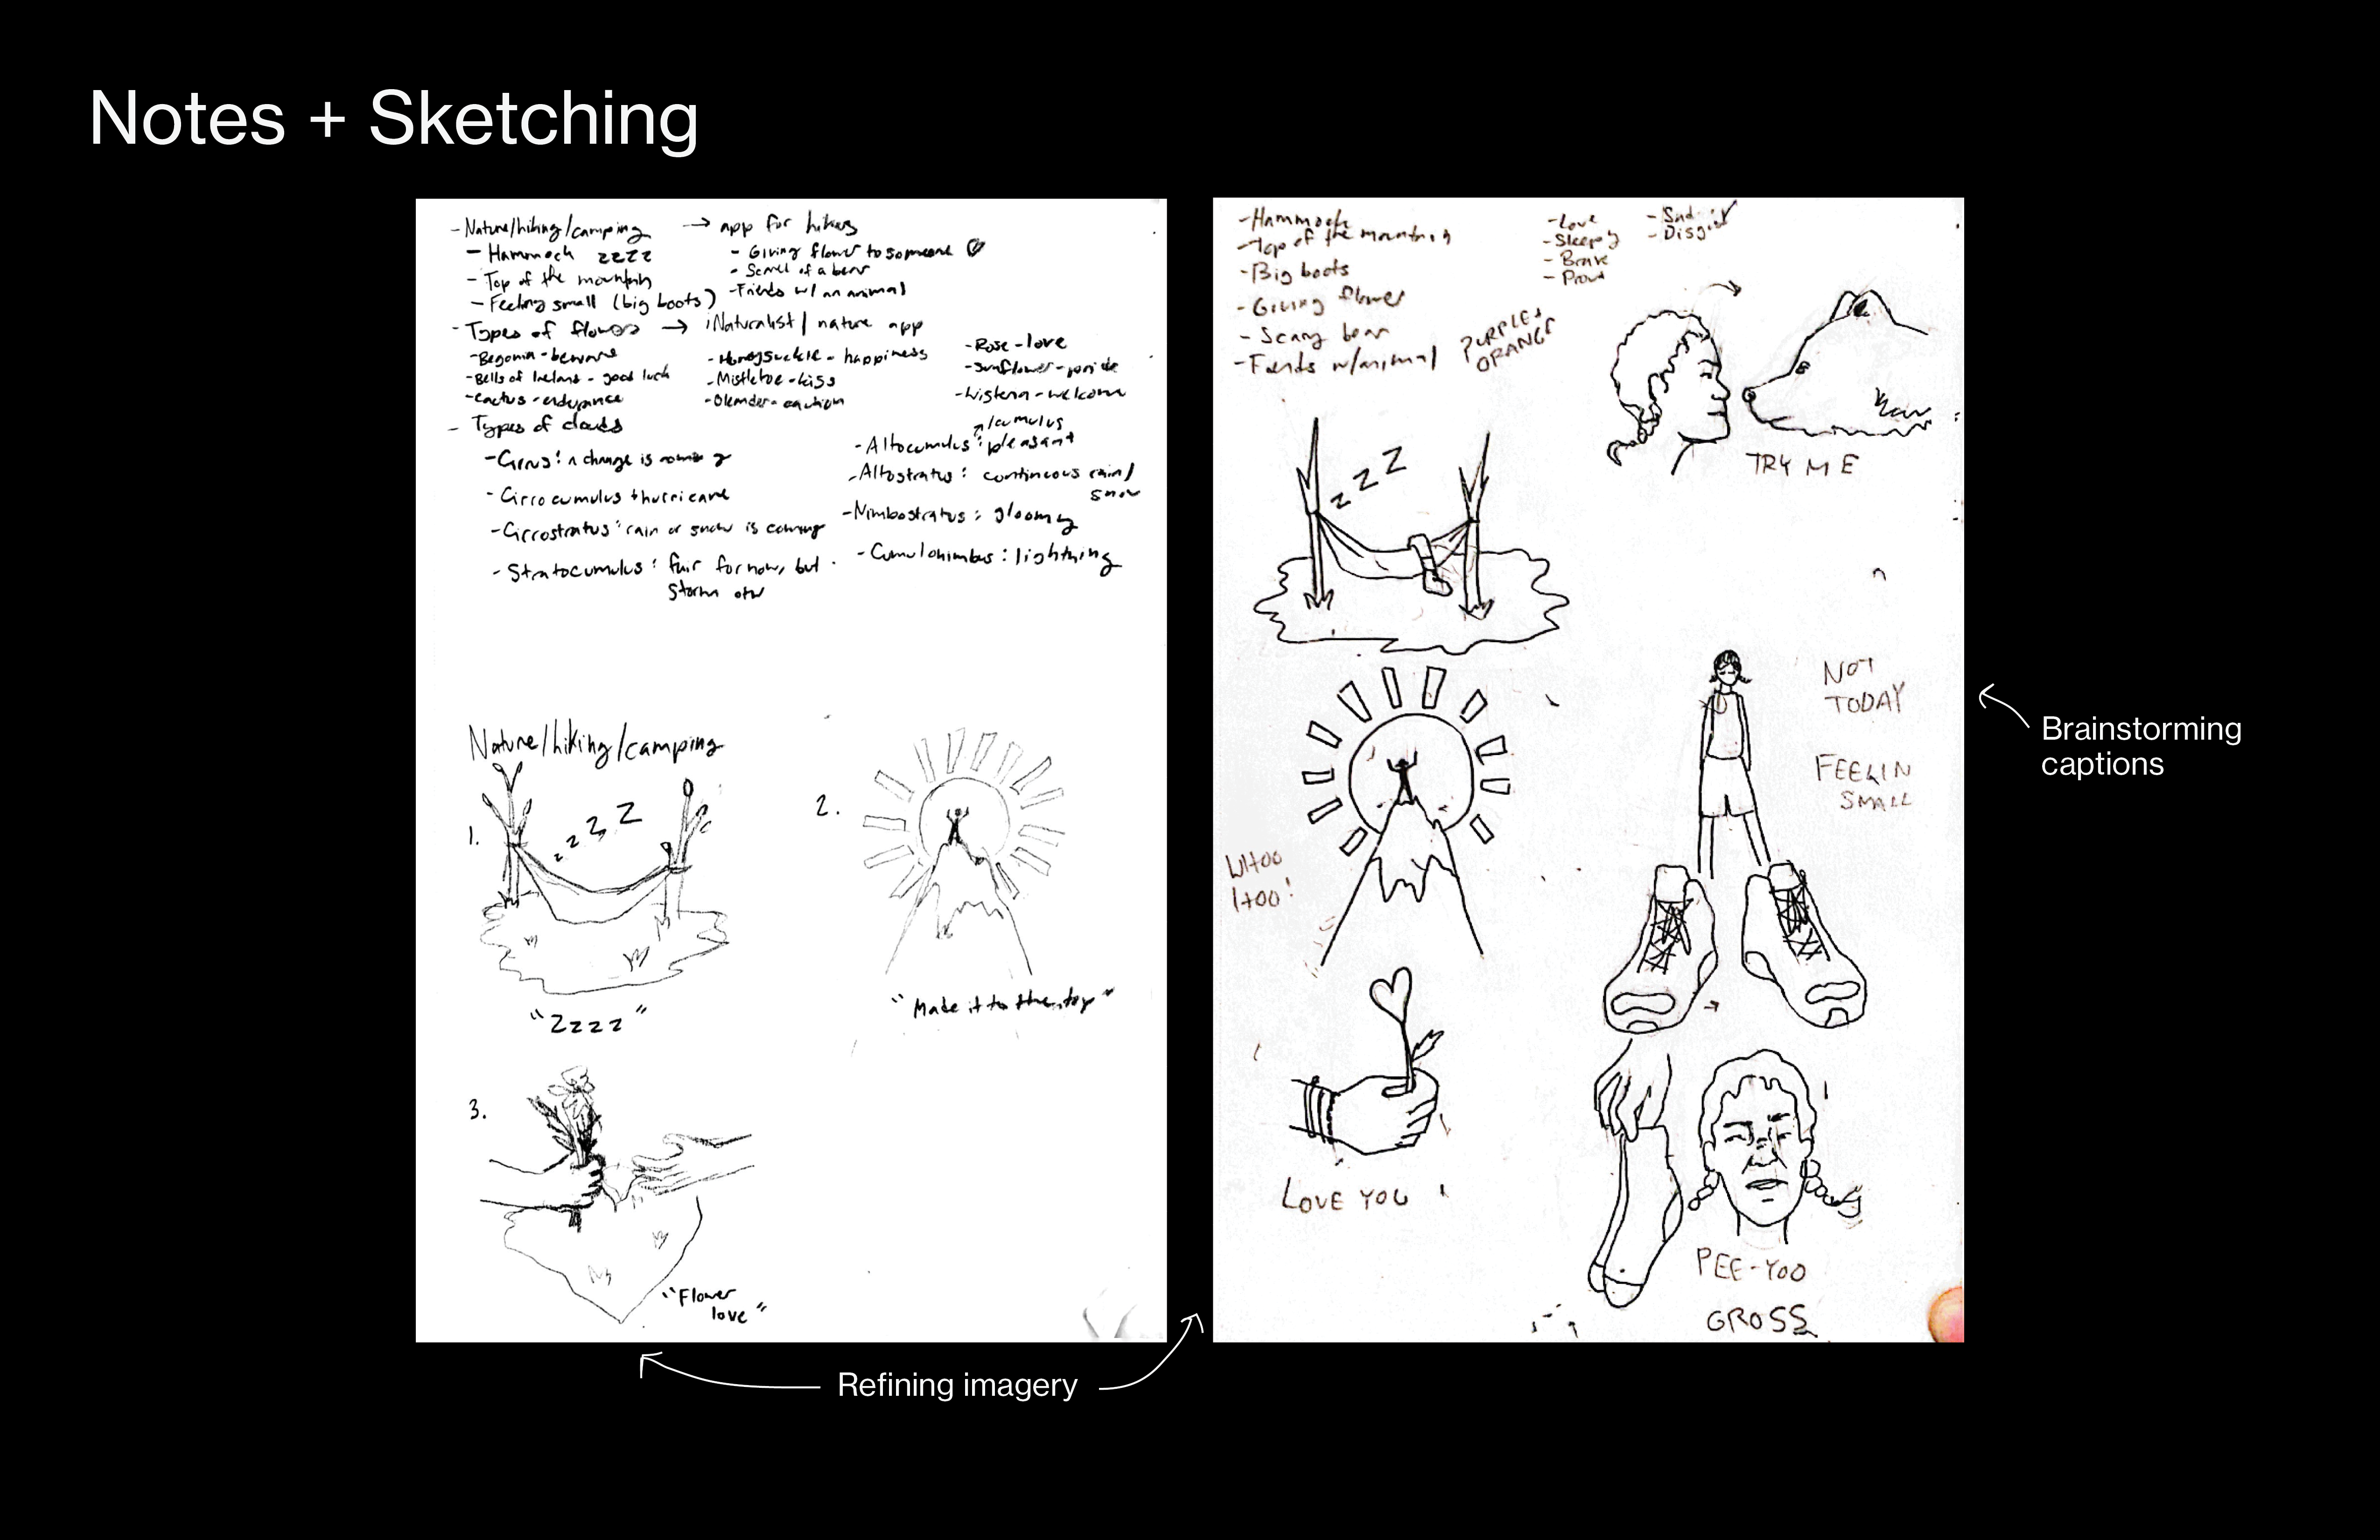 Notes + Sketching
- Nature/hiking/camping → app for hikers
- Hammock zzzz
- Top of the mountain
- Feeling small (big boots)
- Giving flower to someone
- Scared of a bear
- Friends w/ an animal
- Types of flowers → iNaturalist / nature app
- Begonia - beware
- Bells of Ireland - good luck
- Cactus - endurance
- Honeysuckle - happiness
- Mistletoe - kiss
- Oleander - caution
- Rose - love
- Sunflower - pride
- Wisteria - welcome
- Types of clouds
- Cirrus: a change is coming
- Cirrocumulus: hurricane
- Cirrostratus: rain or snow is coming
- Stratocumulus: fair for now, but
storm otw
/cumulus
- Altocumulus: pleasant
- Altostratus: continuous rain/
snow
- Nimbostratus: gloomy
- Cumulonimbus: lightning
Nature/hiking/camping
1.
z z z Z
"Zzzz"
2.
"Made it to the top"
3.
"Flower
love"
- Hammock
- Top of the mountain
- Big boots
- Giving flower
- Scary bear
- Friends w/animal
- Love
- Sleepy
- Brave
- Proud
- Sad
- Disgust
PURPLE +
ORANGE
TRY ME
Z Z Z
NOT
TODAY
FEELIN
SMALL
WHOO
HOO!
LOVE YOU
PEE-YOO
GROSS
Brainstorming
captions
Refining imagery